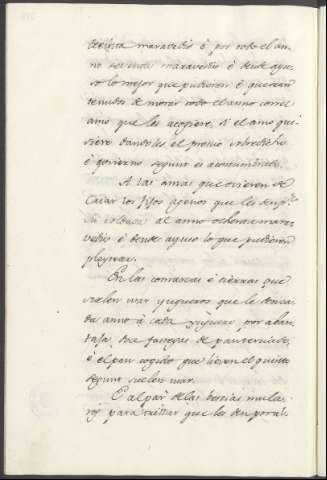 treinta maravedis é por todo el an-
no sesenta maravedis é dende ayu-
so lo mejor que pudieren é que sean
tenudos de morar todo el anno con el
amo que les acogiere, si el amo qui-
siere dandoles el precio sobredicho
é govierno segunt es acostumbrado.
A las amas que ovieren de
criar los fijos agenos que les den p.r
su soldada al anno ochenta mara-
vedis é dende ayuso lo que pudieren
pleytear.
En las comarcas é tierras que
suelen usar yugueros que le den ca-
da anno à cada yuguero por aban-
taja doce fanegas de pan terciado,
é el pan cogido que lieven el quinto
segunt suelen usar.
É al par de las bestias mula-
res para trillar que les den por al-